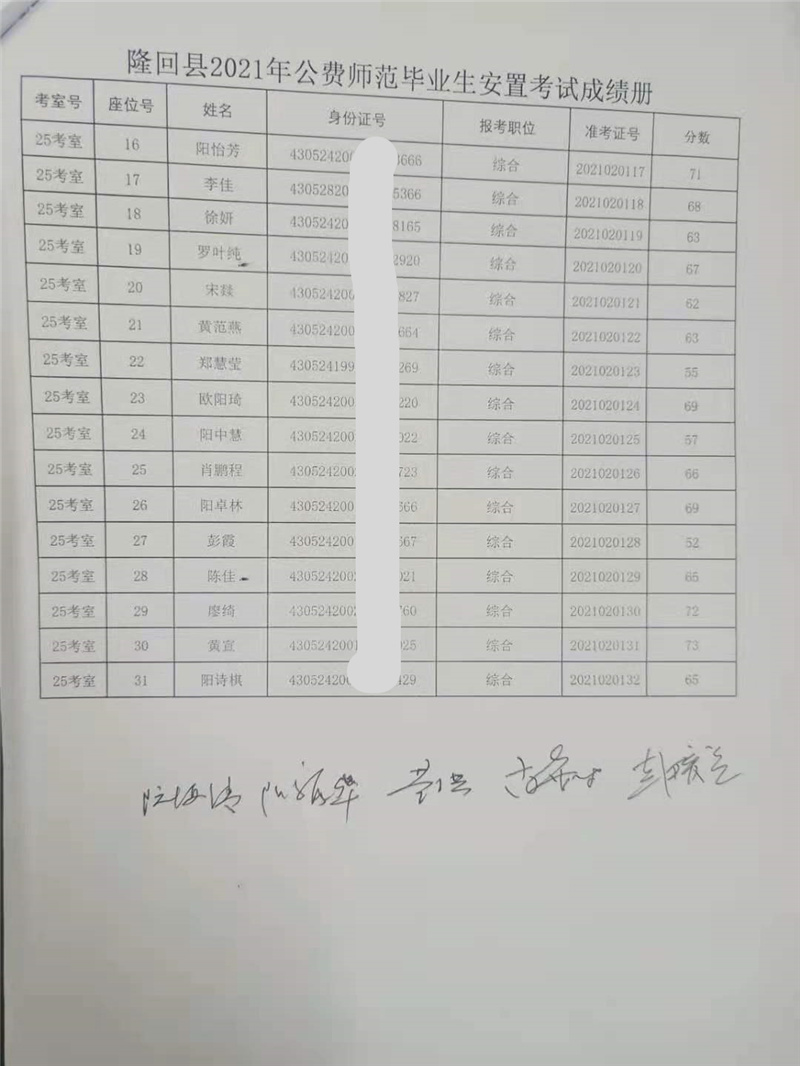 隆回县2021年公费师范毕业生安置考试成绩册
考室号 座位号 姓名 身份证号 报考职位 准考证号 分数
25考室 16 阳怡芳 430524200 3666 综合 2021020117 71
25考室 17 李佳 430528200 5366 综合 2021020118 68
25考室 18 徐妍 430524200 8165 综合 2021020119 63
25考室 19 罗叶纯 430524200 2920 综合 2021020120 67
25考室 20 宋燚 430524200 827 综合 2021020121 62
25考室 21 黄范燕 430524200 664 综合 2021020122 63
25考室 22 郑慧莹 430524199 269 综合 2021020123 55
25考室 23 欧阳琦 430524200 220 综合 2021020124 69
25考室 24 阳中慧 430524200 022 综合 2021020125 57
25考室 25 肖鹏程 430524200 723 综合 2021020126 66
25考室 26 阳卓林 430524200 566 综合 2021020127 69
25考室 27 彭霞 430524200 567 综合 2021020128 52
25考室 28 陈佳 430524200 021 综合 2021020129 65
25考室 29 廖绮 430524200 760 综合 2021020130 72
25考室 30 黄宣 430524200 025 综合 2021020131 73
25考室 31 阳诗棋 430524200 429 综合 2021020132 65